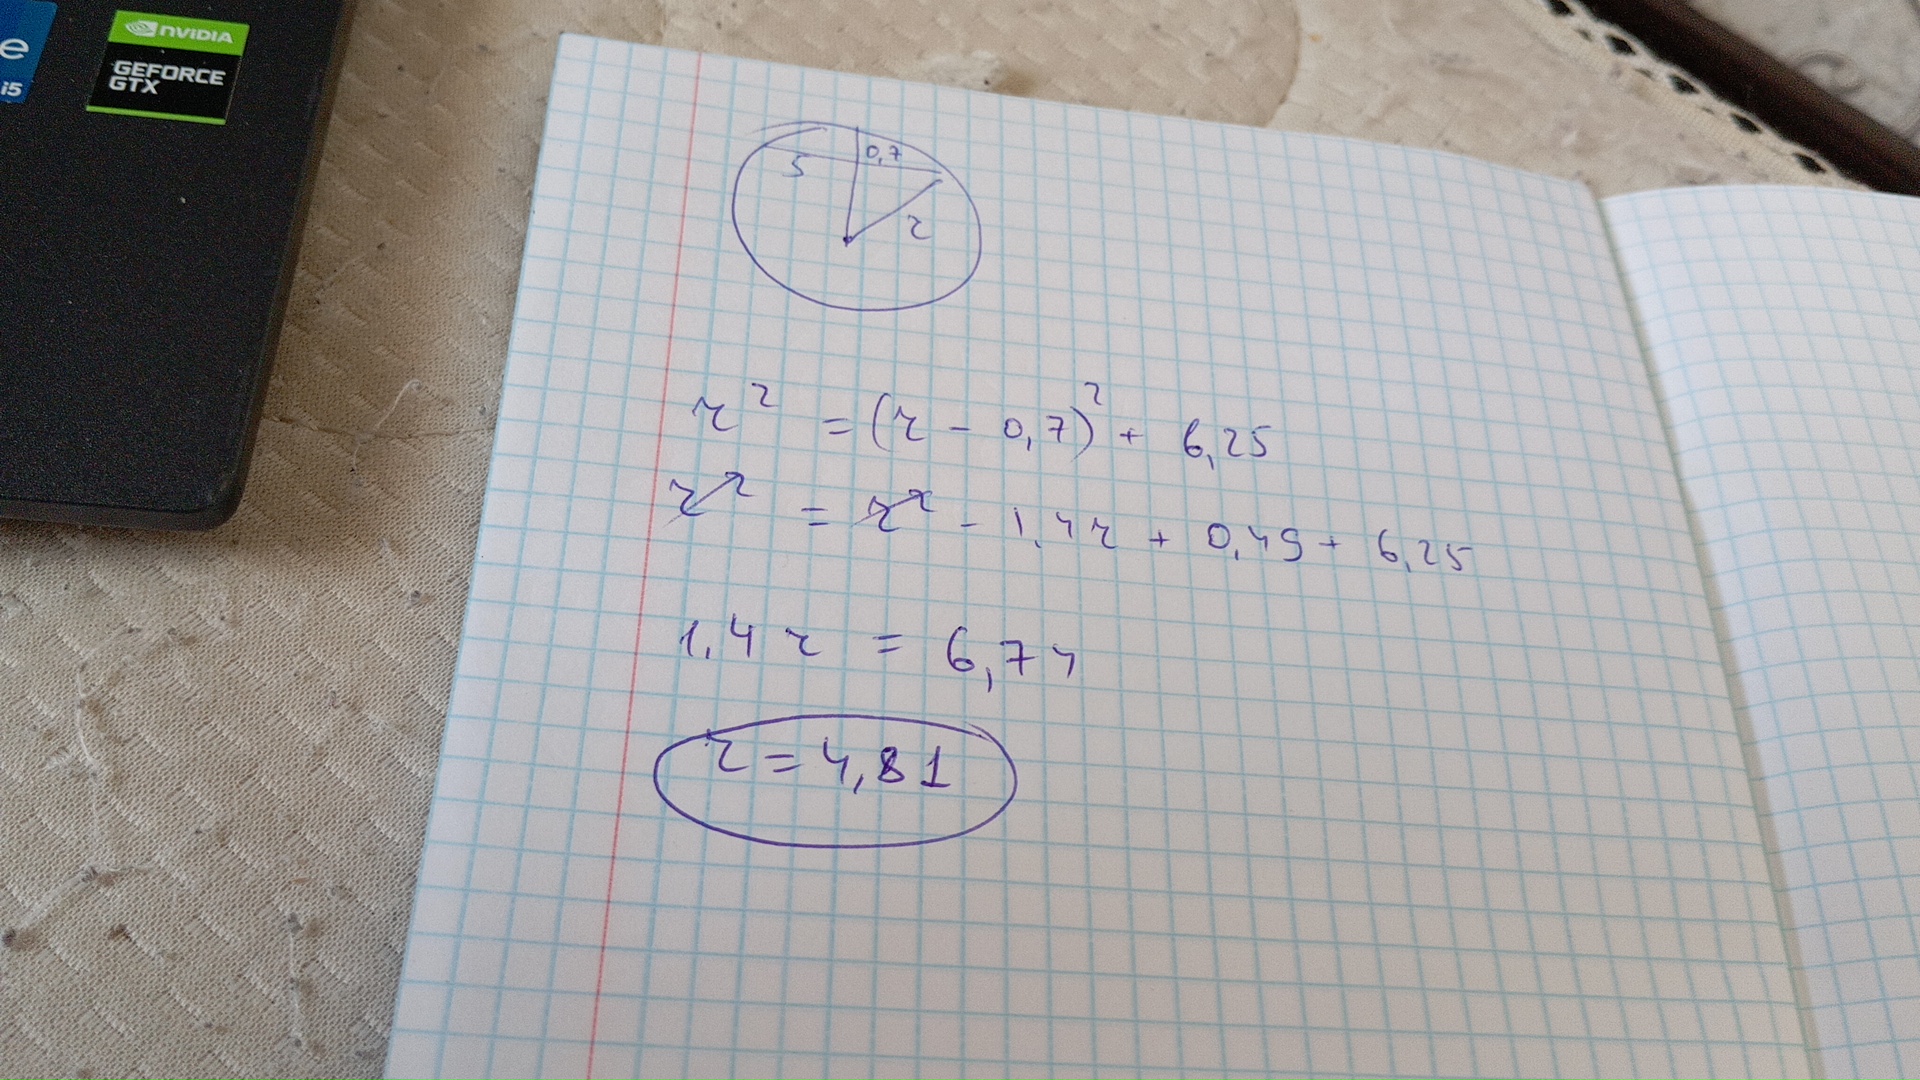 NVIDIA
GEFORCE
GTX
e
i5
0,7
5
r
r² = (r - 0,7)² + 6,25
r² = r² - 1,4r + 0,49 + 6,25
1,4 r = 6,74
r = 4,81